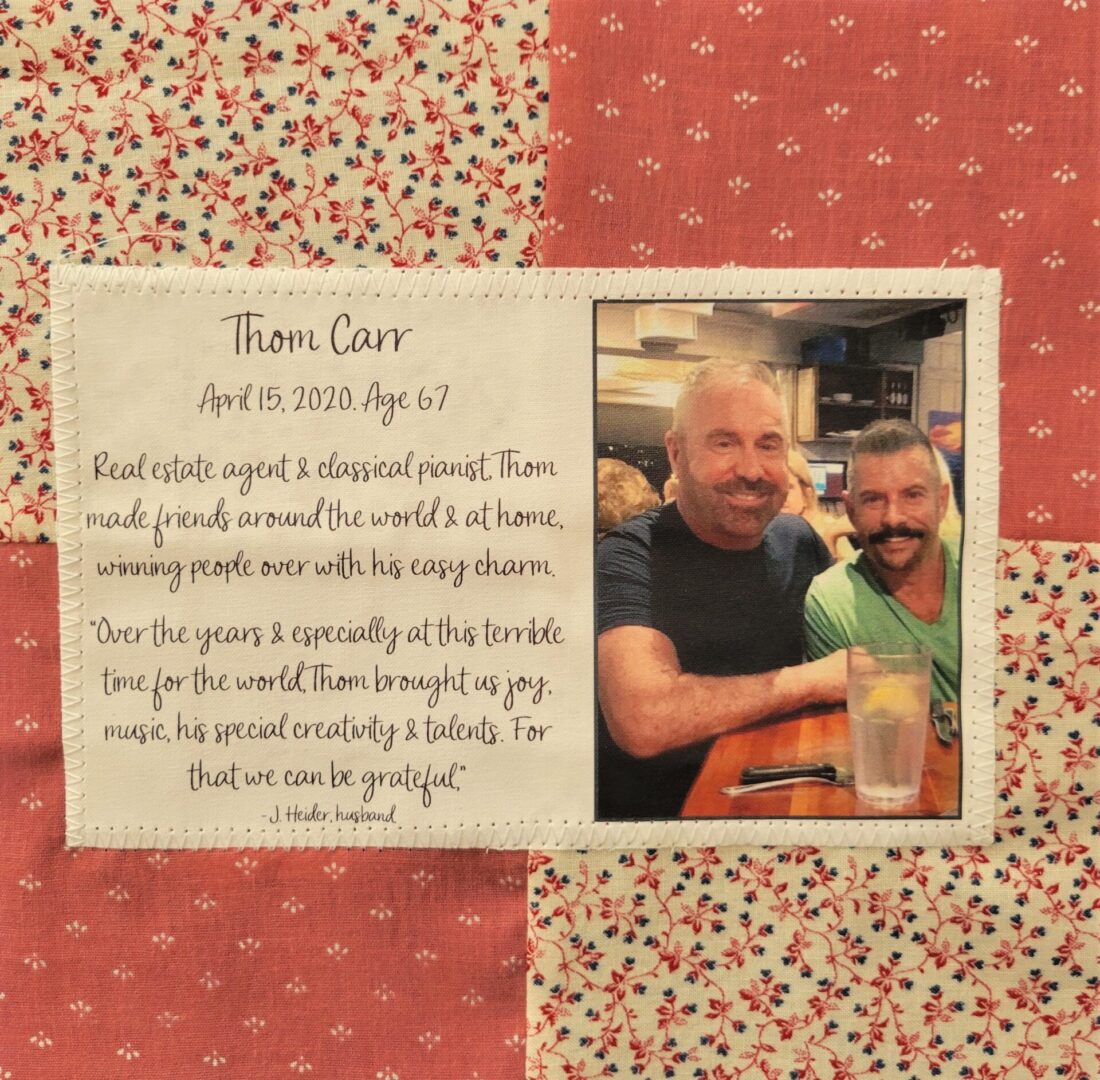 Thom Carr
April 15, 2020. Age 67
Real estate agent & classical pianist, Thom
made friends around the world & at home,
winning people over with his easy charm.
"Over the years & especially at this terrible
time for the world, Thom brought us joy,
music, his special creativity & talents. For
that we can be grateful,"
- J. Heider, husband